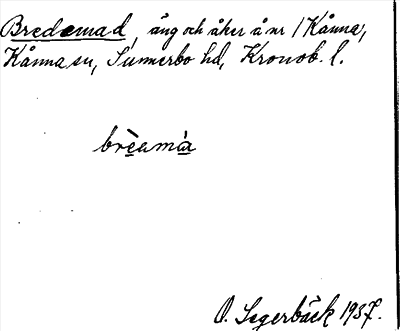 Bredemad, äng och åker å nr 1 Kånna,
Kånna sn, Sunnerbo hd, Kronob. l.
brèumà
O. Segerbäck 1937.